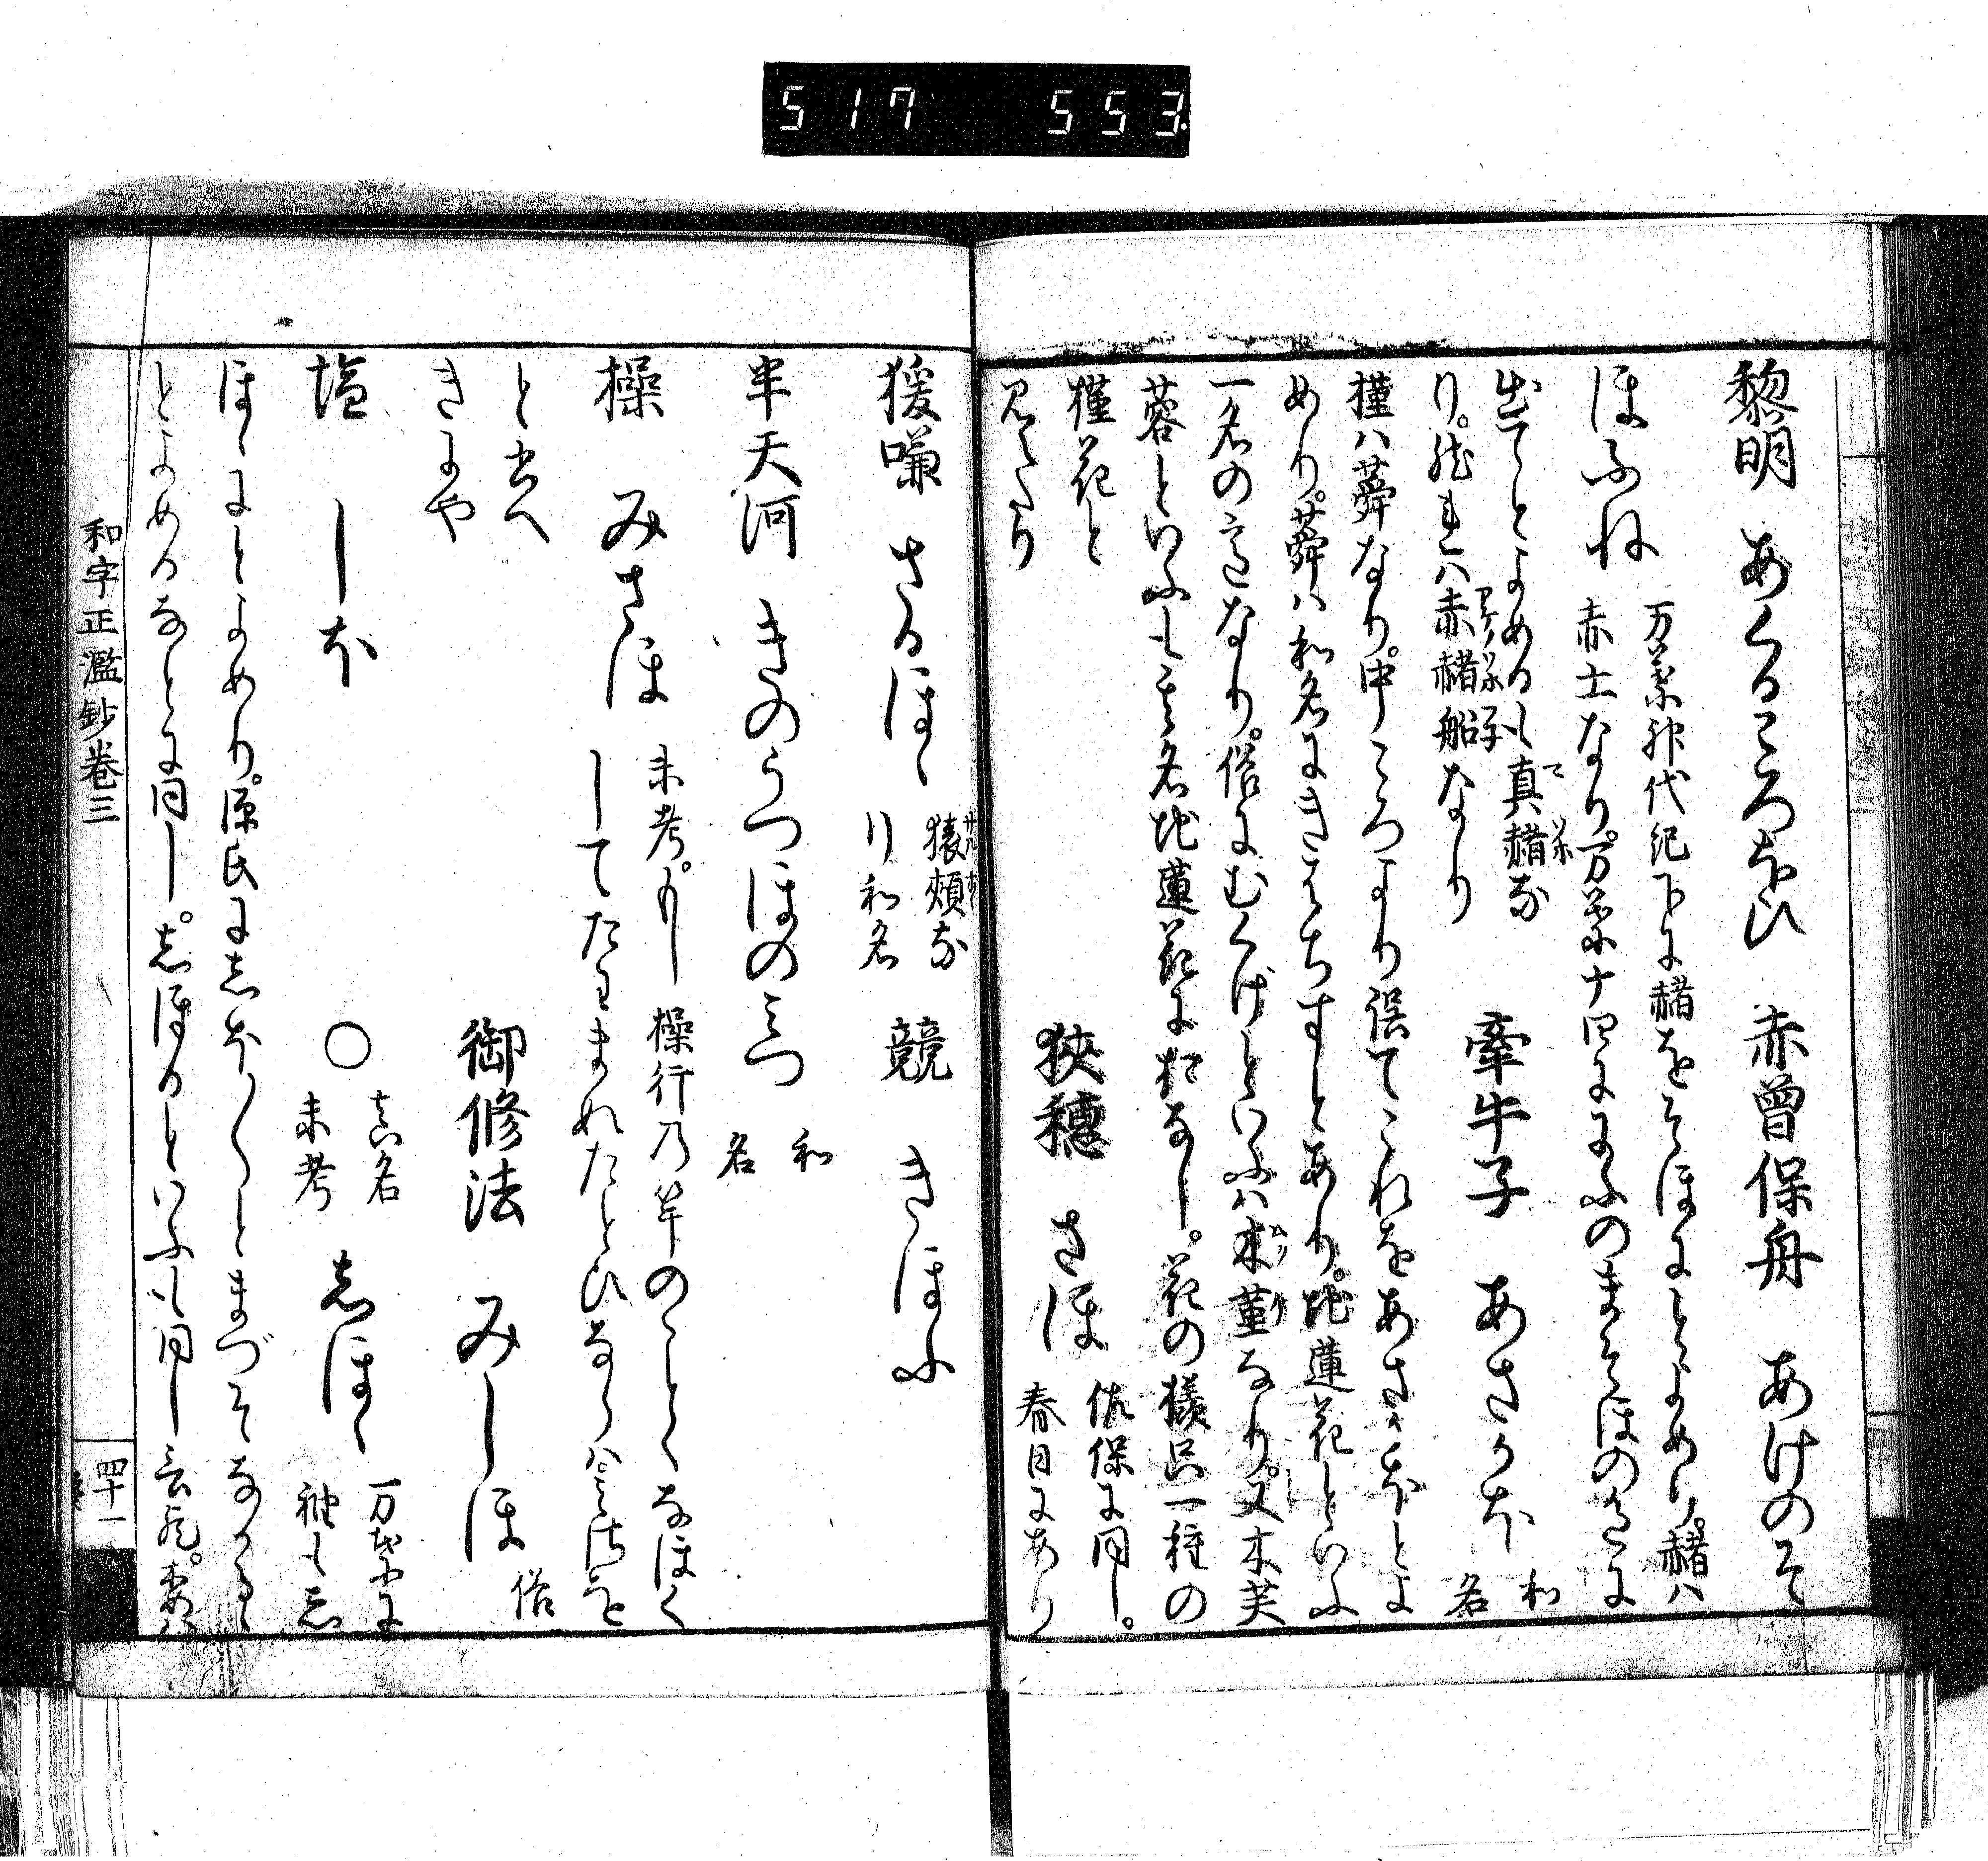 517 553
黎明 あくるころほひ 赤曾保舟 あけのそ
ほふね 万葉神代紀下に赭をそほにとよめり。赭ハ
赤土なり。万葉十四にまかねふくにふのまそほのいろに
出てとよめるも真赭な
り。然れハ赤赭船なり
牽牛子 あさかほ 和名
槿ハ蕣なり。中ころより誤てこれをあさかほとよ
めり。蕣ハ和名にきはちすとあり。地蓮花といふ
一名の心なり。俗にむくげといふハ木菫なり。又木芙
蓉といふも其名地蓮花におなし。花の様只一種の
槿花と
見えたり
狭穂 さほ 佐保に同し。
春日にあり
猨嗛 さるほゝ 猿頰な
り和名
競 きほふ
半天河 きのうつほのみつ 和名
操 みさほ 未考。もし操行乃竿のことくなほく
してたわまれたとひならハ
と書へ
きにや
御修法 みしほ 俗
塩 しほ
〇 真名
未考
志ほゝ 万葉に
袖も志
ほゝにとよめり。源氏に志ほ〱とまづそなかるゝ
とよめるなとに同し。志ほるといふも同し
和字正濫鈔卷三
四十一